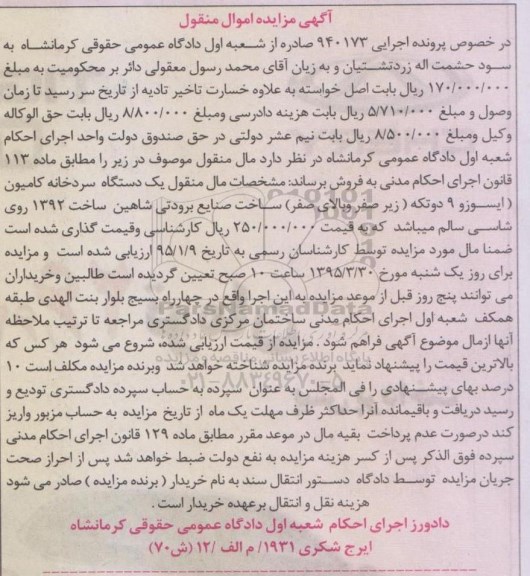 آگهی مزایده اموال منقول
در خصوص پرونده اجرایی ۹۴۰۱۷۳ صادره از شعبه اول دادگاه عمومی حقوقی کرمانشاه به
سود حشمت اله زردتشتیان و به زیان آقای محمد رسول معقولی دائر بر محکومیت به مبلغ
۱۷۰/۰۰۰/۰۰۰ ریال بابت اصل خواسته به علاوه خسارت تاخیر تادیه از تاریخ سر رسید تا زمان
وصول و مبلغ ۵/۷۱۰/۰۰۰ ریال بابت هزینه دادرسی ومبلغ ۸/۸۰۰/۰۰۰ ریال بابت حق الوکاله
وکیل ومبلغ ۸/۵۰۰/۰۰۰ ریال بابت نیم عشر دولتی در حق صندوق دولت واحد اجرای احکام
شعبه اول دادگاه عمومی کرمانشاه در نظر دارد مال منقول موصوف در زیر را مطابق ماده ۱۱۳
قانون اجرای احکام مدنی به فروش برساند: مشخصات مال منقول یک دستگاه سردخانه کامیون
( ایسوزو ۹ دوتکه ( زیر صفر وبالای صفر) ساخت صنایع برودتی شاهین ساخت ۱۳۹۲ روی
شاسی سالم میباشد که به قیمت ۲۵۰/۰۰۰/۰۰۰ ریال کارشناسی وقیمت گذاری شده است
ضمنا مال مورد مزایده توسط کارشناسان رسمی به تاریخ ۹۵/۱/۹ ارزیابی شده است و مزایده
برای روز یک شنبه مورخ ۱۳۹۵/۳/۳۰ ساعت ۱۰ صبح تعیین گردیده است طالبین وخریداران
می توانند پنج روز قبل از موعد مزایده به این اجرا واقع در چهارراه بسیج بلوار بنت الهدی طبقه
همکف شعبه اول اجرای احکام مدنی ساختمان مرکزی دادگستری مراجعه تا ترتیب ملاحظه
آنها ازمال موضوع آگهی فراهم شود . مزایده از قیمت ارزیابی شده شروع می شود هر کس که
بالاترین قیمت را پیشنهاد نماید برنده مزایده شناخته خواهد شد وبرنده مزایده مکلف است ۱۰
درصد بهای پیشنهادی را فی المجلس به عنوان سپرده به حساب سپرده دادگستری تودیع و
رسید دریافت و باقیمانده آنرا حداکثر ظرف مهلت یک ماه از تاریخ مزایده به حساب مزبور واریز
کند درصورت عدم پرداخت بقیه مال در موعد مقرر مطابق ماده ۱۲۹ قانون اجرای احکام مدنی
سپرده فوق الذکر پس از کسر هزینه مزایده به نفع دولت ضبط خواهد شد پس از احراز صحت
جریان مزایده توسط دادگاه دستور انتقال سند به نام خریدار ( برنده مزایده ) صادر می شود
هزینه نقل و انتقال برعهده خریدار است .
دادورز اجرای احکام شعبه اول دادگاه عمومی حقوقی کرمانشاه
ایرج شکری ۱۹۳۱/ م الف /۱۲ (ش۷۰)